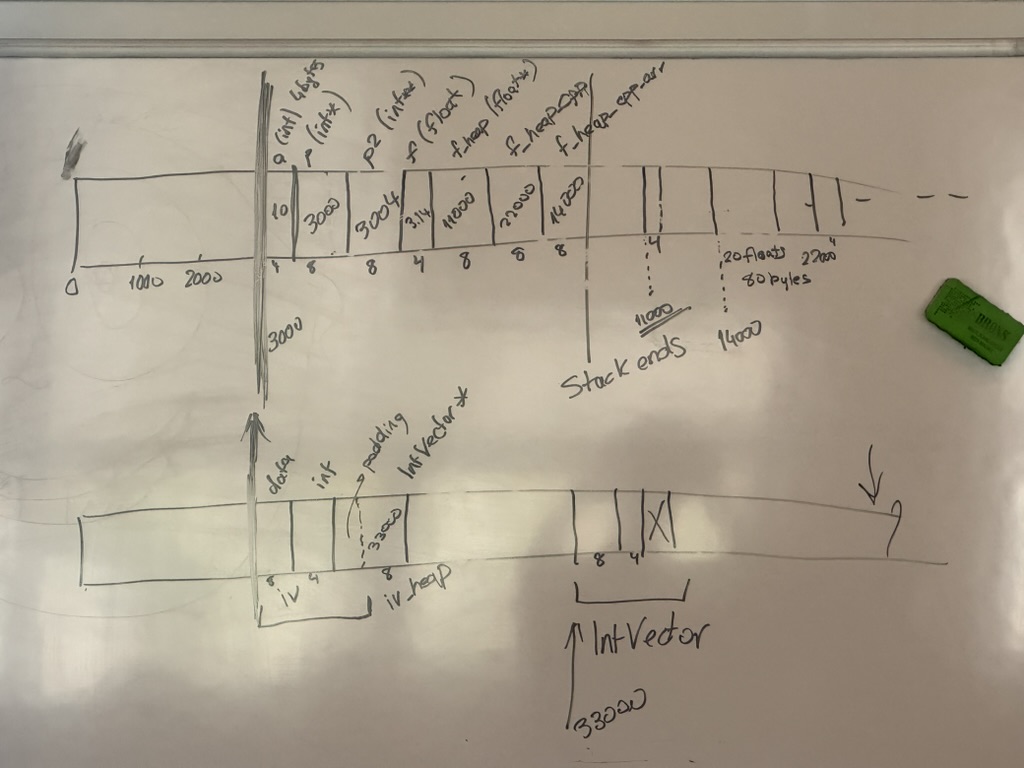 a (int) 4bytes
p (int*)
p2 (int**)
f (float)
f_heap (float*)
f_heap_cpp
f_heap_cpp_arr
10
3000
3004
3.14
11000
22000
14000
0
1000
2000
4
8
8
4
8
8
8
4
20 floats
80 bytes
22000
4
3000
11000
14000
Stack ends
data
int
padding
IntVector*
33000
8
4
8
iv
iv_heap
8
4
X
IntVector
33000